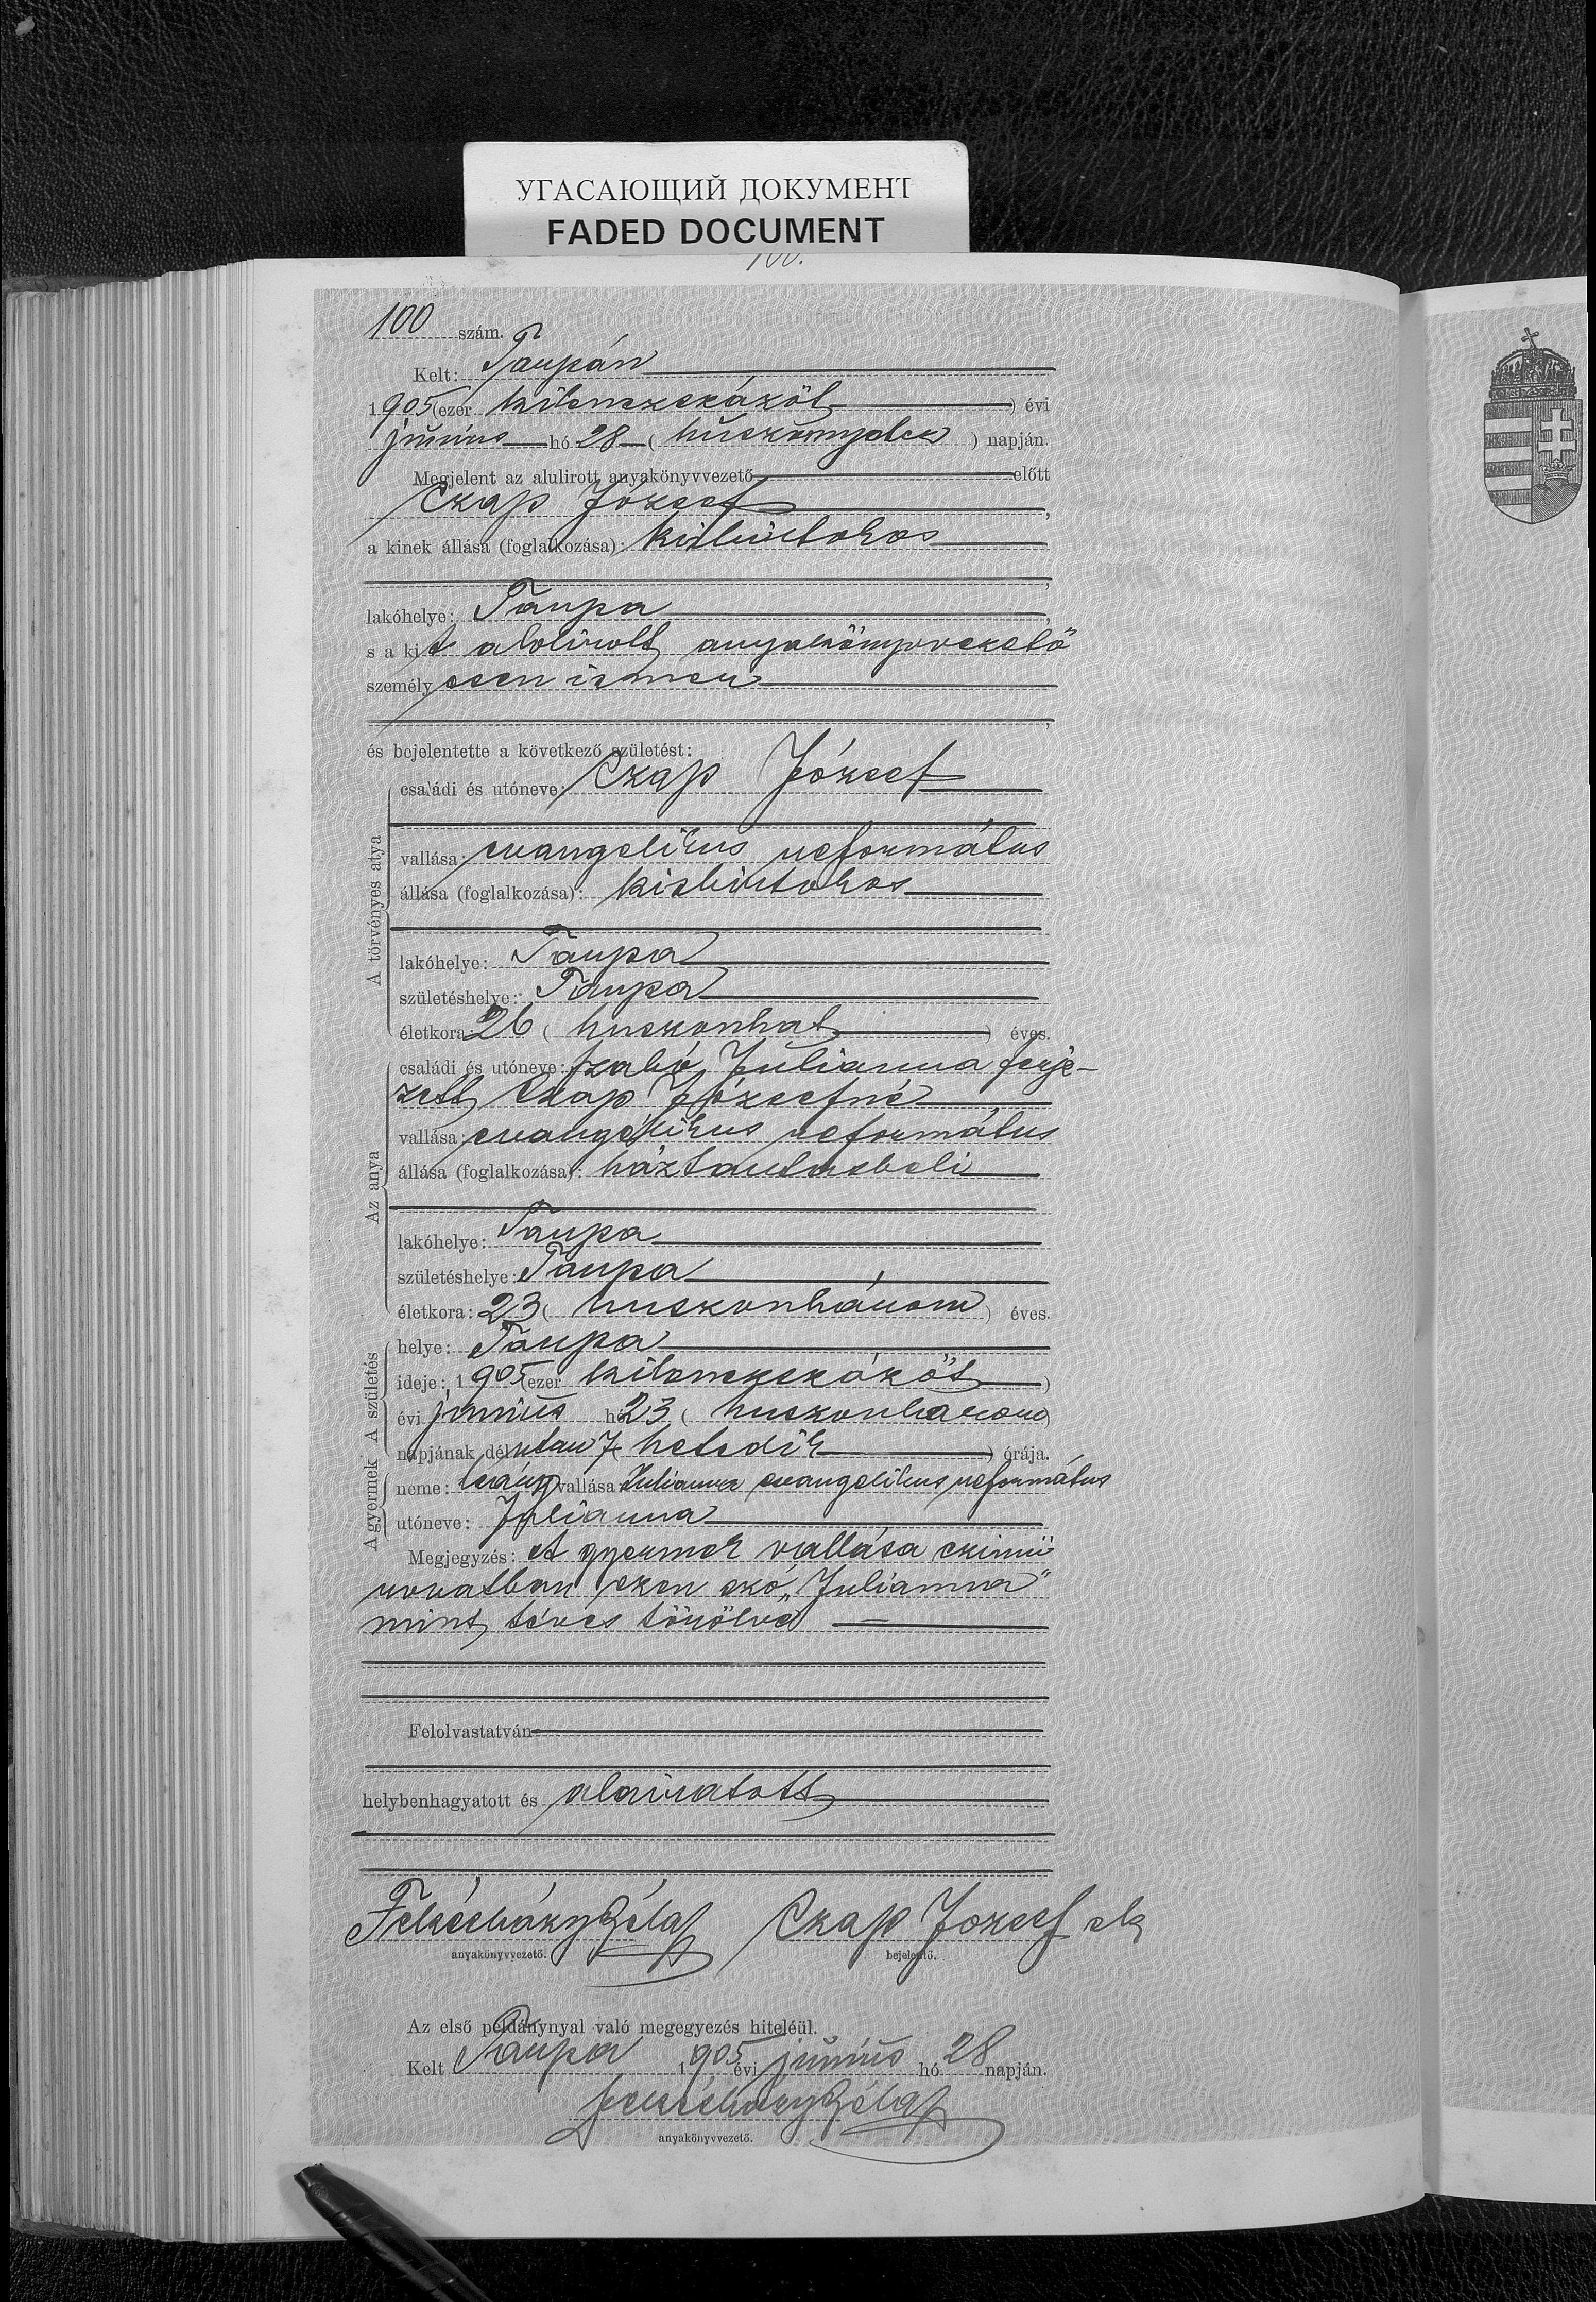 УГАСАЮЩИЙ ДОКУМЕНТ
FADED DOCUMENT
100.
100 szám.
Kelt: Tarpán
1905 (ezer kilenczszázöt) évi
június hó 28 (huszonnyolcz) napján.
Megjelent az alulirott anyakönyvvezető előtt
Czap József,
a kinek állása (foglalkozása): kisbirtokos
lakóhelye: Tarpa,
s a kit alolirott anyakönyvvezető
személyesen ismer
és bejelentette a következő születést:
A törvényes atya
családi és utóneve: Czap József
vallása: evangelikus református
állása (foglalkozása): kisbirtokos
lakóhelye: Tarpa
születéshelye: Tarpa
életkora: 26 (huszonhat) éves.
Az anya
családi és utóneve: Szabó Julianna férje-
zett Czap Józsefné
vallása: evangélikus református
állása (foglalkozása): háztartásbeli
lakóhelye: Tarpa
születéshelye: Tarpa
életkora: 23 (huszonhárom) éves.
A születés
helye: Tarpa
ideje: 1905 (ezer kilenczszázöt)
évi június hó 23 (huszonhárom)
napjának délután 7 (hetedik) órája.
A gyermek
neme: leány vallása: Julianna evangelikus református
utóneve: Julianna
Megjegyzés: A gyermek vallása czimü
rovatban ezen szó „Julianna"
mint téves törölve
Felolvastatván
helybenhagyatott és aláiratott
Béla Czap József sk
anyakönyvvezető. bejelentő.
Az első példánynyal való megegyezés hiteléül.
Kelt Tarpa 1905 évi június hó 28 napján.
Béla
anyakönyvvezető.